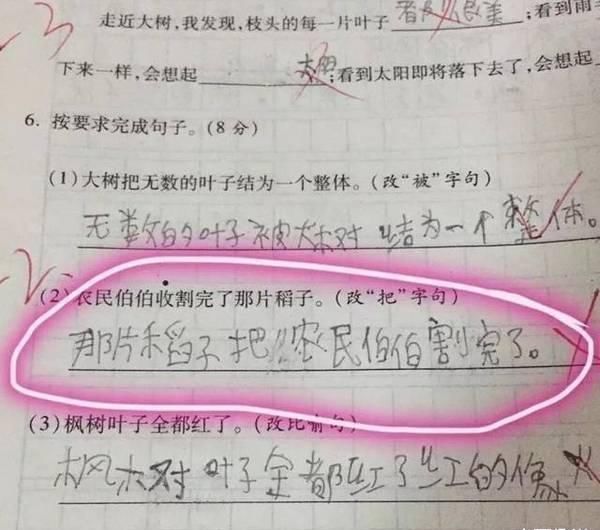 走近大树,我发现,枝头的每一片叶子 ;看到雨
下来一样,会想起 太阳 ;看到太阳即将落下去了,会想起
6. 按要求完成句子。(8 分)
(1)大树把无数的叶子结为一个整体。(改“被”字句)
无数的叶子被大树结为一个整体。
(2)农民伯伯收割完了那片稻子。(改“把”字句)
那片稻子把农民伯伯割完了。
(3)枫树叶子全都红了。(改比喻句)
枫树叶子全都红了红的像